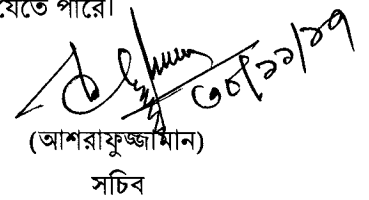 যেতে পারে।
৩০/১১/১৭
(আশরাফুজ্জামান)
সচিব